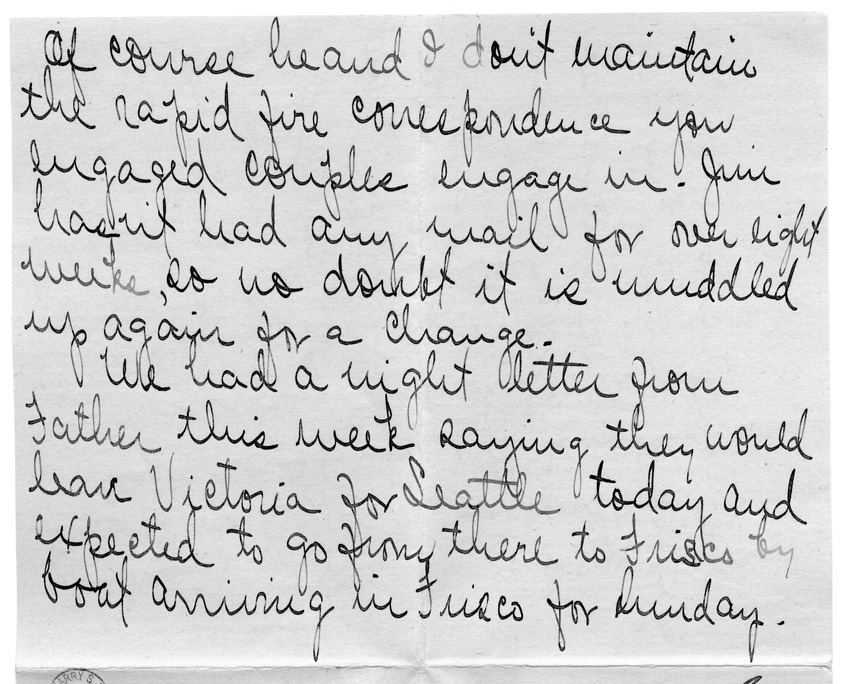 Of course he and I don't maintain
the rapid fire correspondence you
engaged couples engage in. Jim
hasn't had any mail for over eight
weeks, so no doubt it is muddled
up again for a change.
We had a night letter from
Father this week saying they would
leave Victoria for Seattle today and
expected to go from there to Frisco by
boat arriving in Frisco for Sunday.
ARRY S.